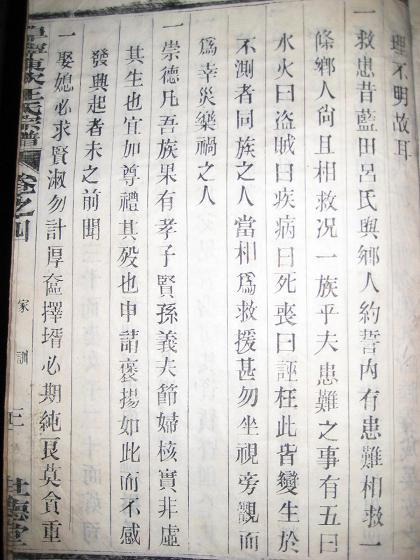 理不明故耳
一救患昔藍田呂氏與鄉人約誓內有患難相救一
條鄉人尚且相救況一族乎夫患難之事有五曰
水火曰盜賊曰疾病曰死喪曰誣枉此皆變生於
不測者同族之人當相爲救援甚勿坐視旁觀而
爲幸災樂禍之人
一崇德凡吾族果有孝子賢孫義夫節婦核實非虛
其生也宜加尊禮其殁也申請褒揚如此而不感
發興起者未之前聞
一娶媳必求賢淑勿計厚奩擇壻必期純良莫貪重
王氏宗譜
卷之四
家訓